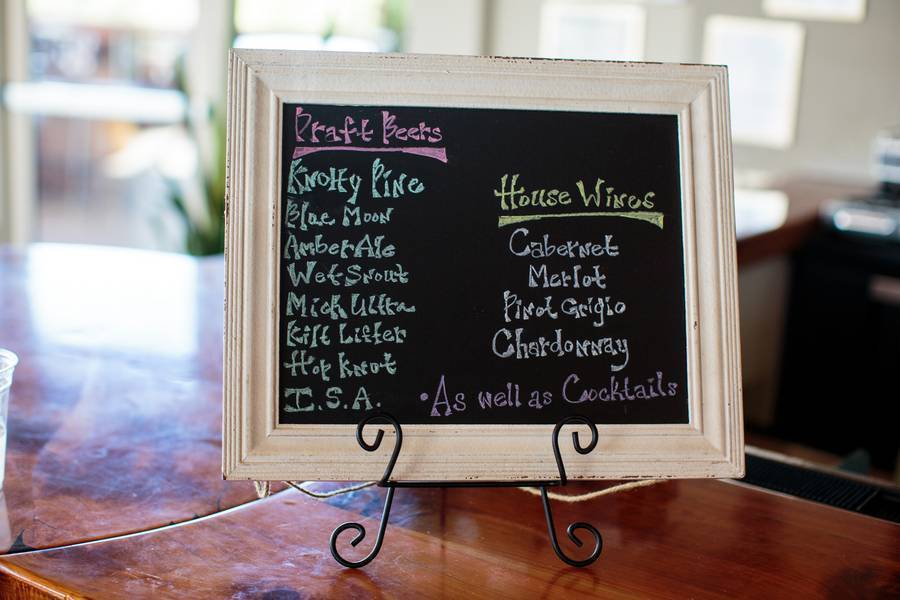 Draft Beers
Knotty Pine
Blue Moon
Amber Ale
Wet Snout
Mich Ultra
Kilt Lifter
Hop Knot
I.S.A.
House Wines
Cabernet
Merlot
Pinot Grigio
Chardonnay
•As well as Cocktails